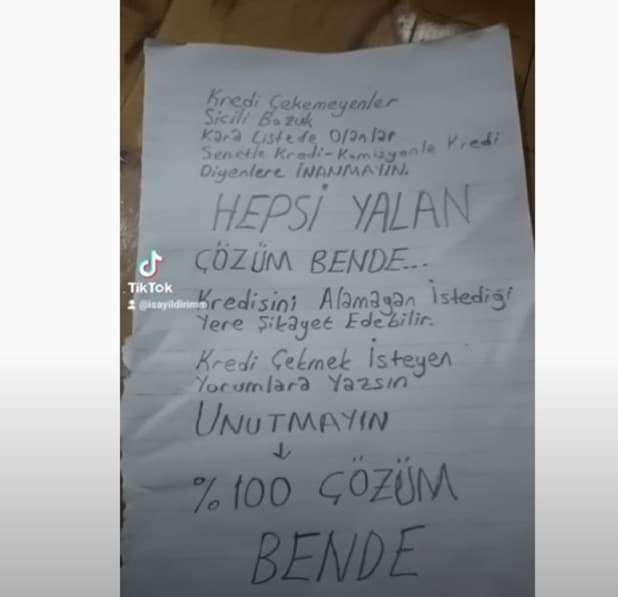 Kredi Çekemeyenler
Sicili Bozuk
Kara Listede Olanlar
Senetle Kredi-Komisyonla Kredi
Diyenlere İNANMAYIN.
HEPSİ YALAN
ÇÖZÜM BENDE...
Kredisini Alamayan İstediği
Yere Şikayet Edebilir.
Kredi Çekmek İsteyen
Yorumlara Yazsın
UNUTMAYIN
↓
%100 ÇÖZÜM
BENDE
TikTok
@isayildirimm